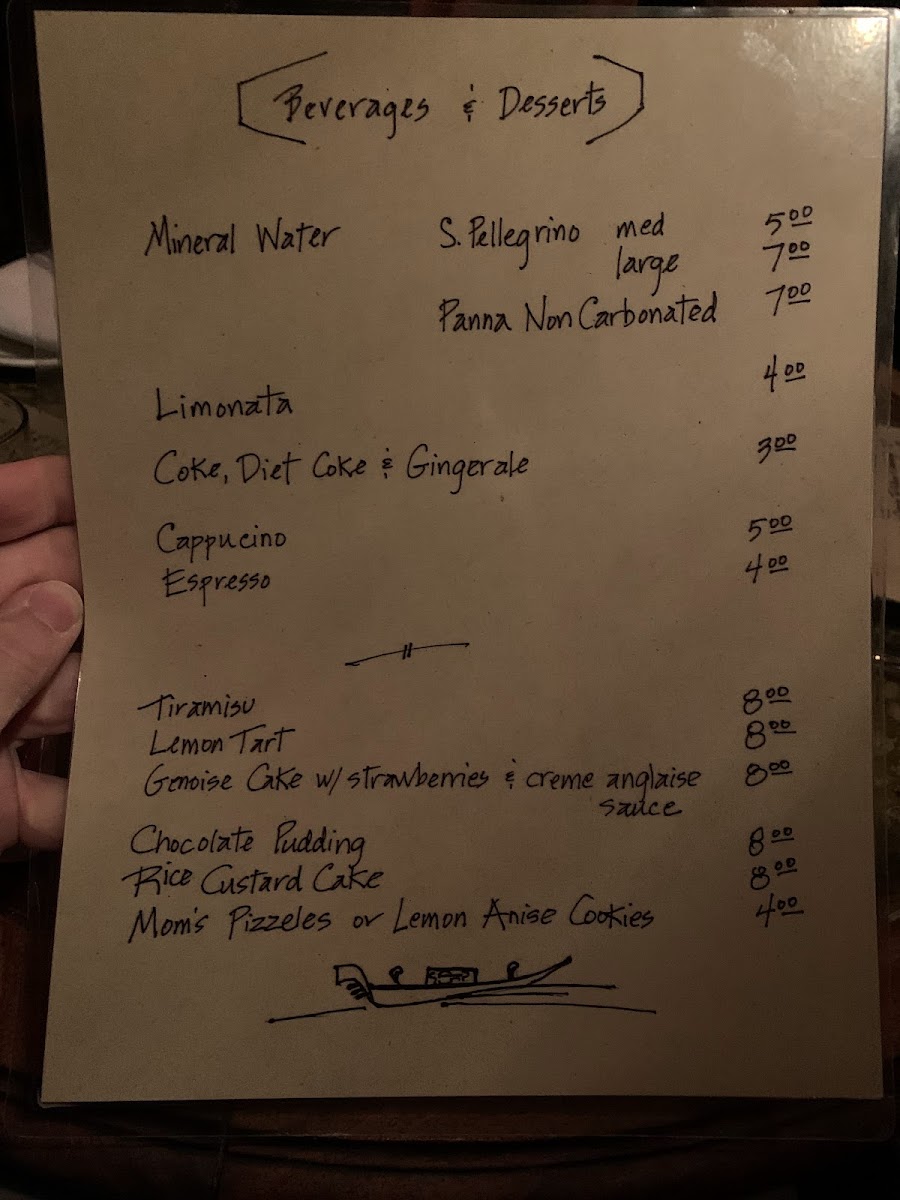 Beverages & Desserts
Mineral Water S. Pellegrino med 5.00
large 7.00
Panna Non Carbonated 7.00
Limonata 4.00
Coke, Diet Coke & Gingerale 3.00
Cappucino 5.00
Espresso 4.00
Tiramisu 8.00
Lemon Tart 8.00
Genoise Cake w/ strawberries & creme anglaise 8.00
sauce
Chocolate Pudding 8.00
Rice Custard Cake 8.00
Mom's Pizzeles or Lemon Anise Cookies 4.00